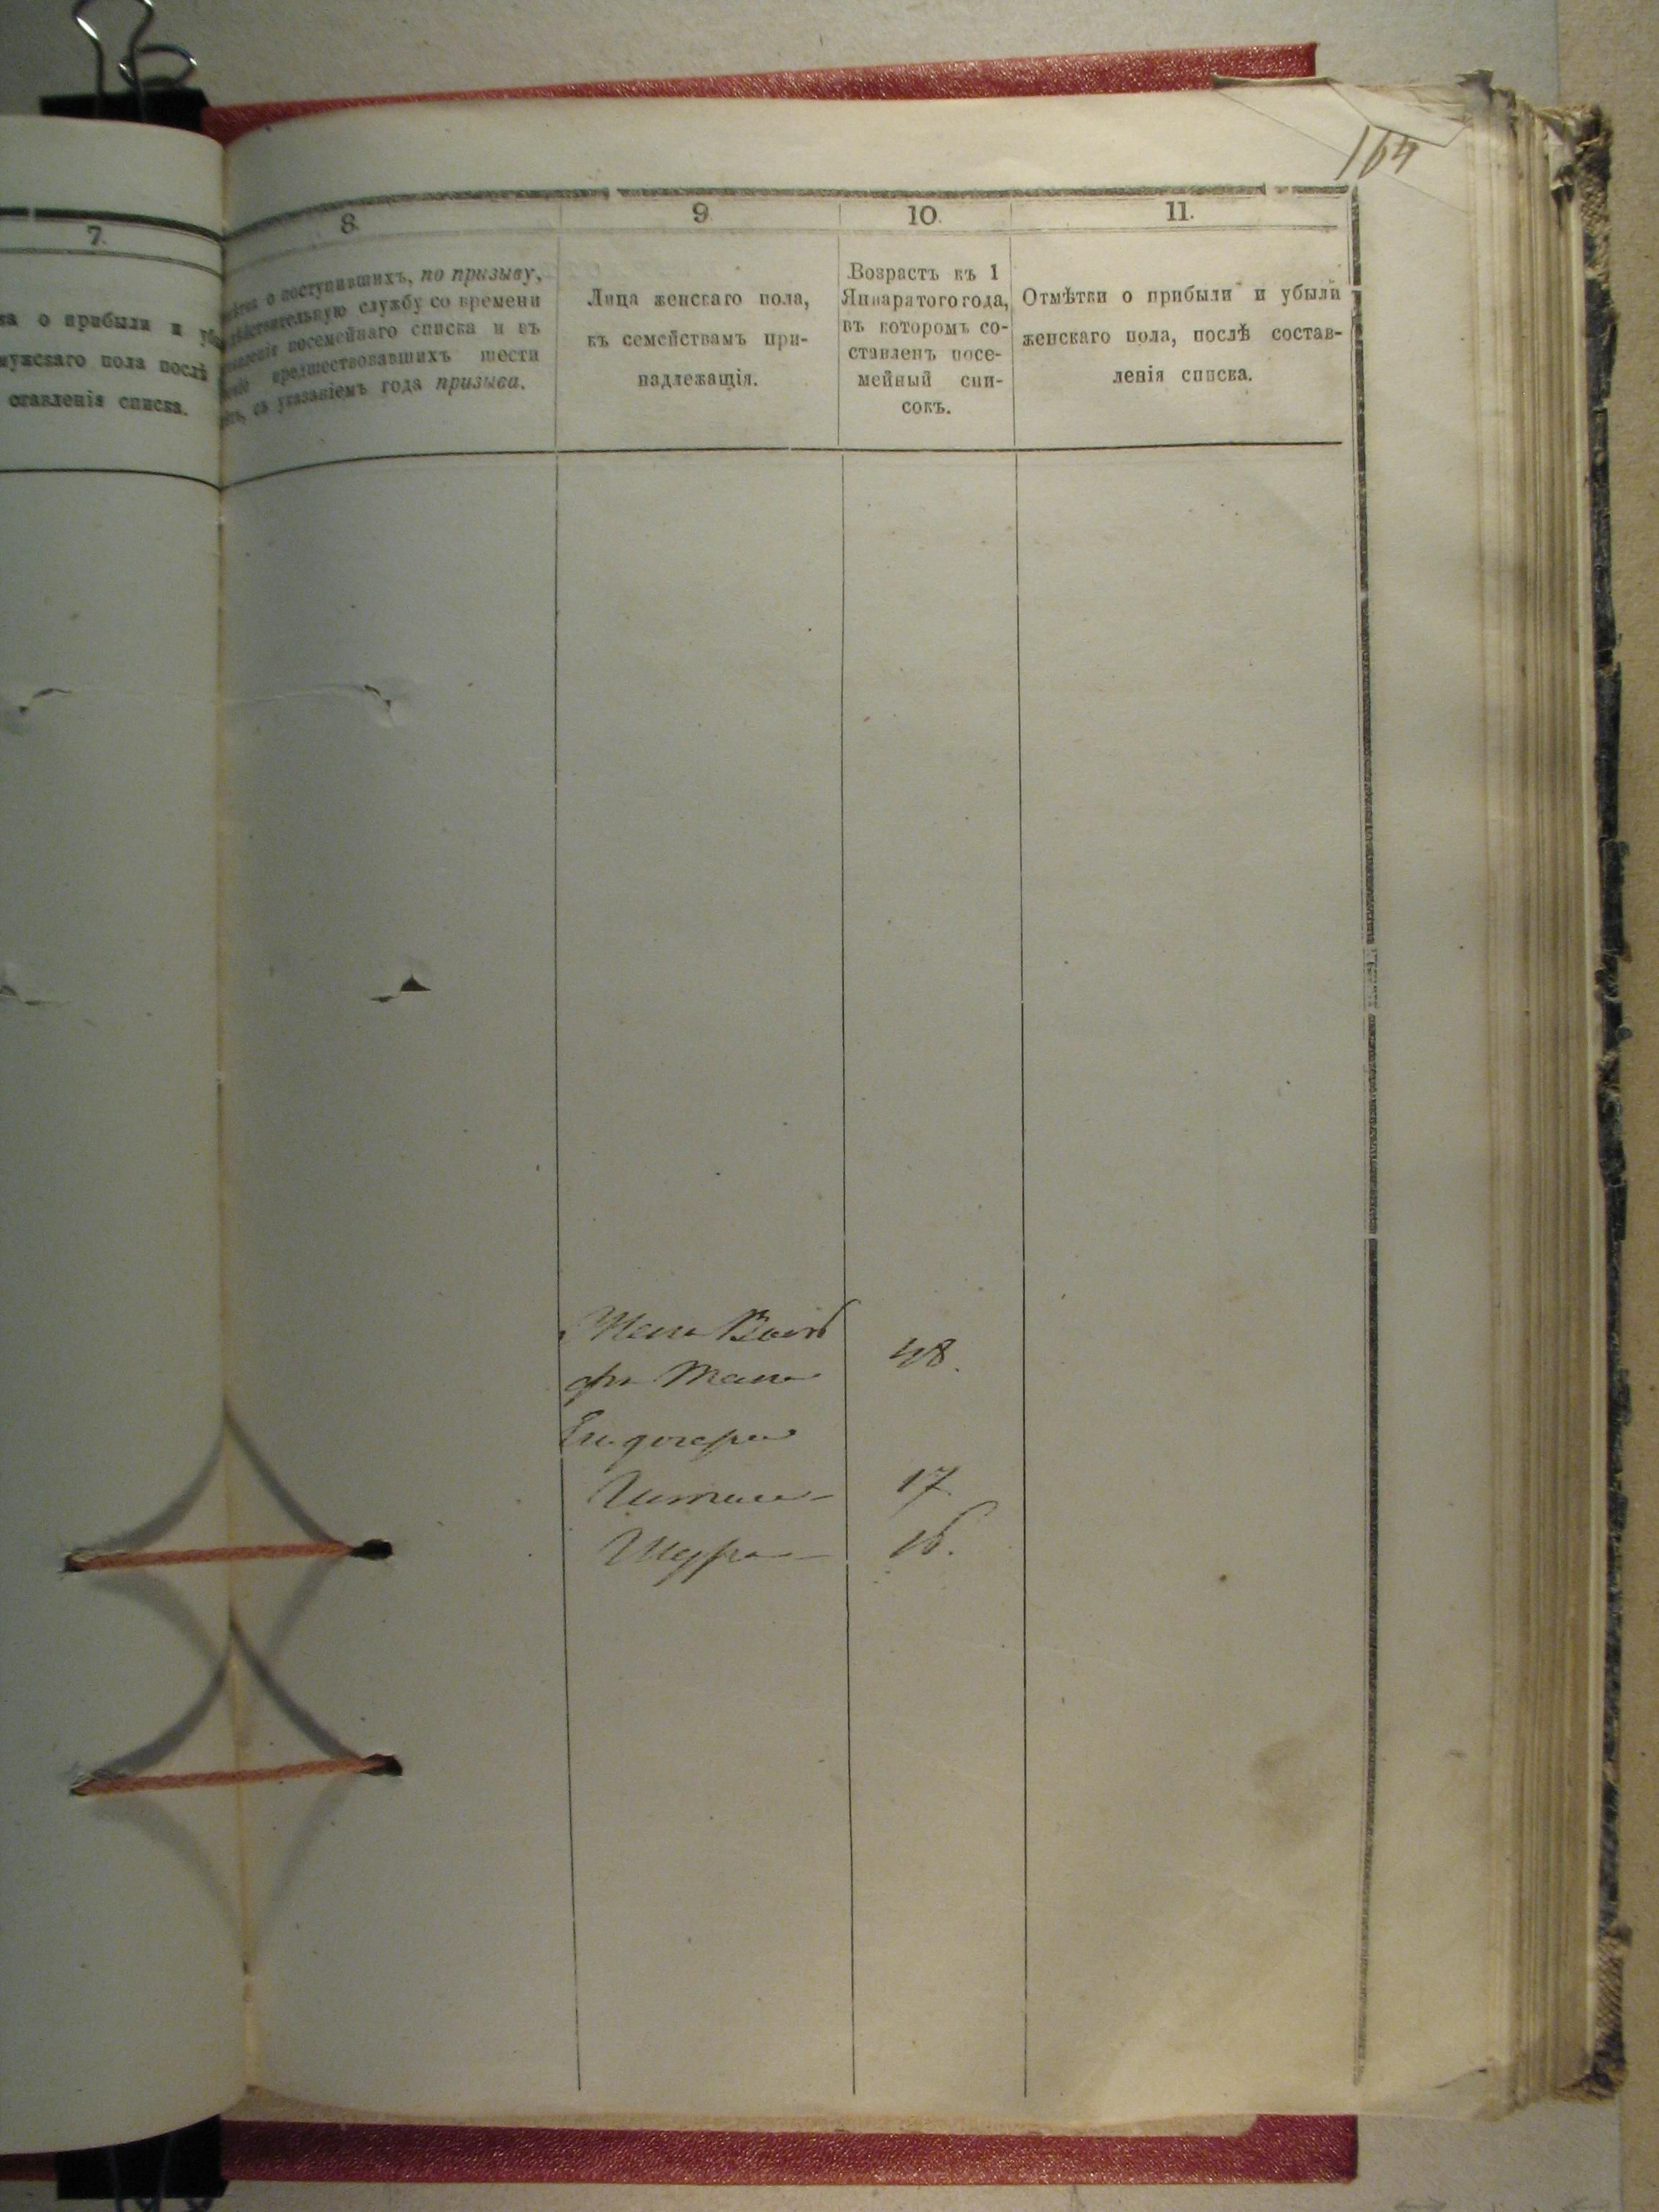 164
7.
8.
9.
10.
11.
о прибыли и
мужскаго пола послѣ
ставленія списка.
о поступившихъ, по призыву,
дѣйствительную службу со времени
посемейнаго списка и въ
предшествовавшихъ шести
съ указаніемъ года призыва.
Лица женскаго пола,
къ семействамъ при-
надлежащія.
Возрастъ къ 1
Января того года,
въ которомъ со-
ставленъ посе-
мейный спи-
сокъ.
Отмѣтки о прибыли и убыли
женскаго пола, послѣ состав-
ленія списка.
Жена
48.
17.
16.